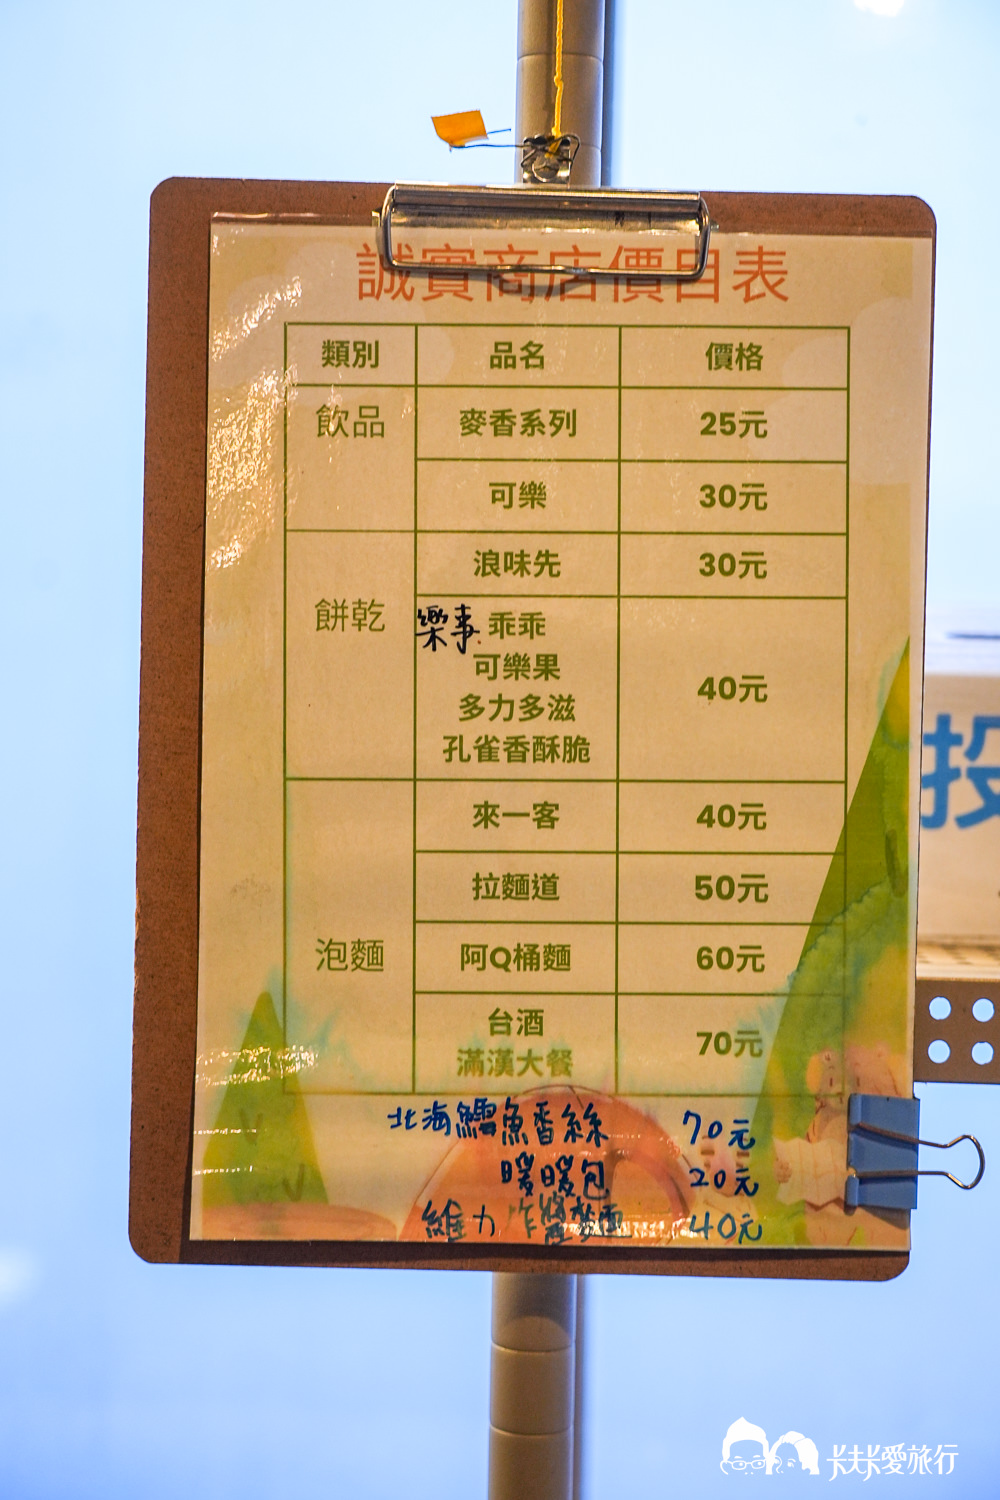 誠實商店價目表
類別 品名 價格
飲品 麥香系列 25元
可樂 30元
餅乾 浪味先 30元
樂事 乖乖
可樂果
多力多滋
孔雀香酥脆
40元
泡麵 來一客 40元
拉麵道 50元
阿Q桶麵 60元
台酒
滿漢大餐
70元
北海鱈魚香絲 70元
暖暖包 20元
維力炸醬麵 40元
投
卡夫卡愛旅行